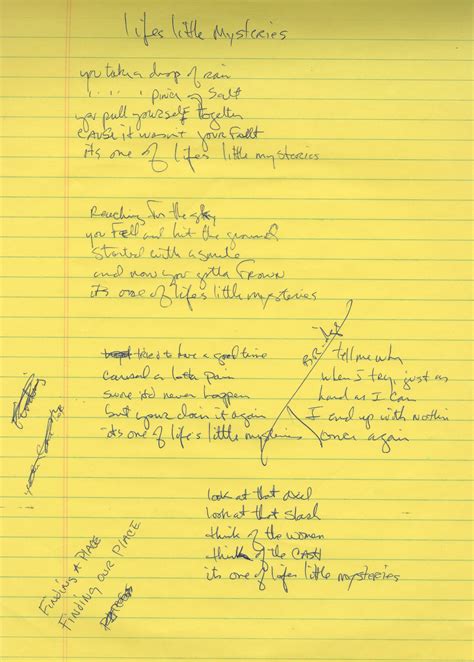 lifes little mysteries
you take a drop of rain
" " " pinch of salt
you pull yourself together
cause it wasn't your fallt
its one of lifes little mysteries
Reaching for the sky
you fell and hit the ground
started with a smile
and now you gotta frown
its one of lifes little mysteries
tried to have a good time
caused a lotta pain
swore it'd never happen
but your doin it again
its one of life's little mysteries
Bridge
tell me why
when I try just as
hard as I can
I end up with nothin
once again
look at that deal
look at that stash
think of the women
think of the CASH
its one of lifes little mysteries
FINDING A PLACE
FINDING OUR PLACE